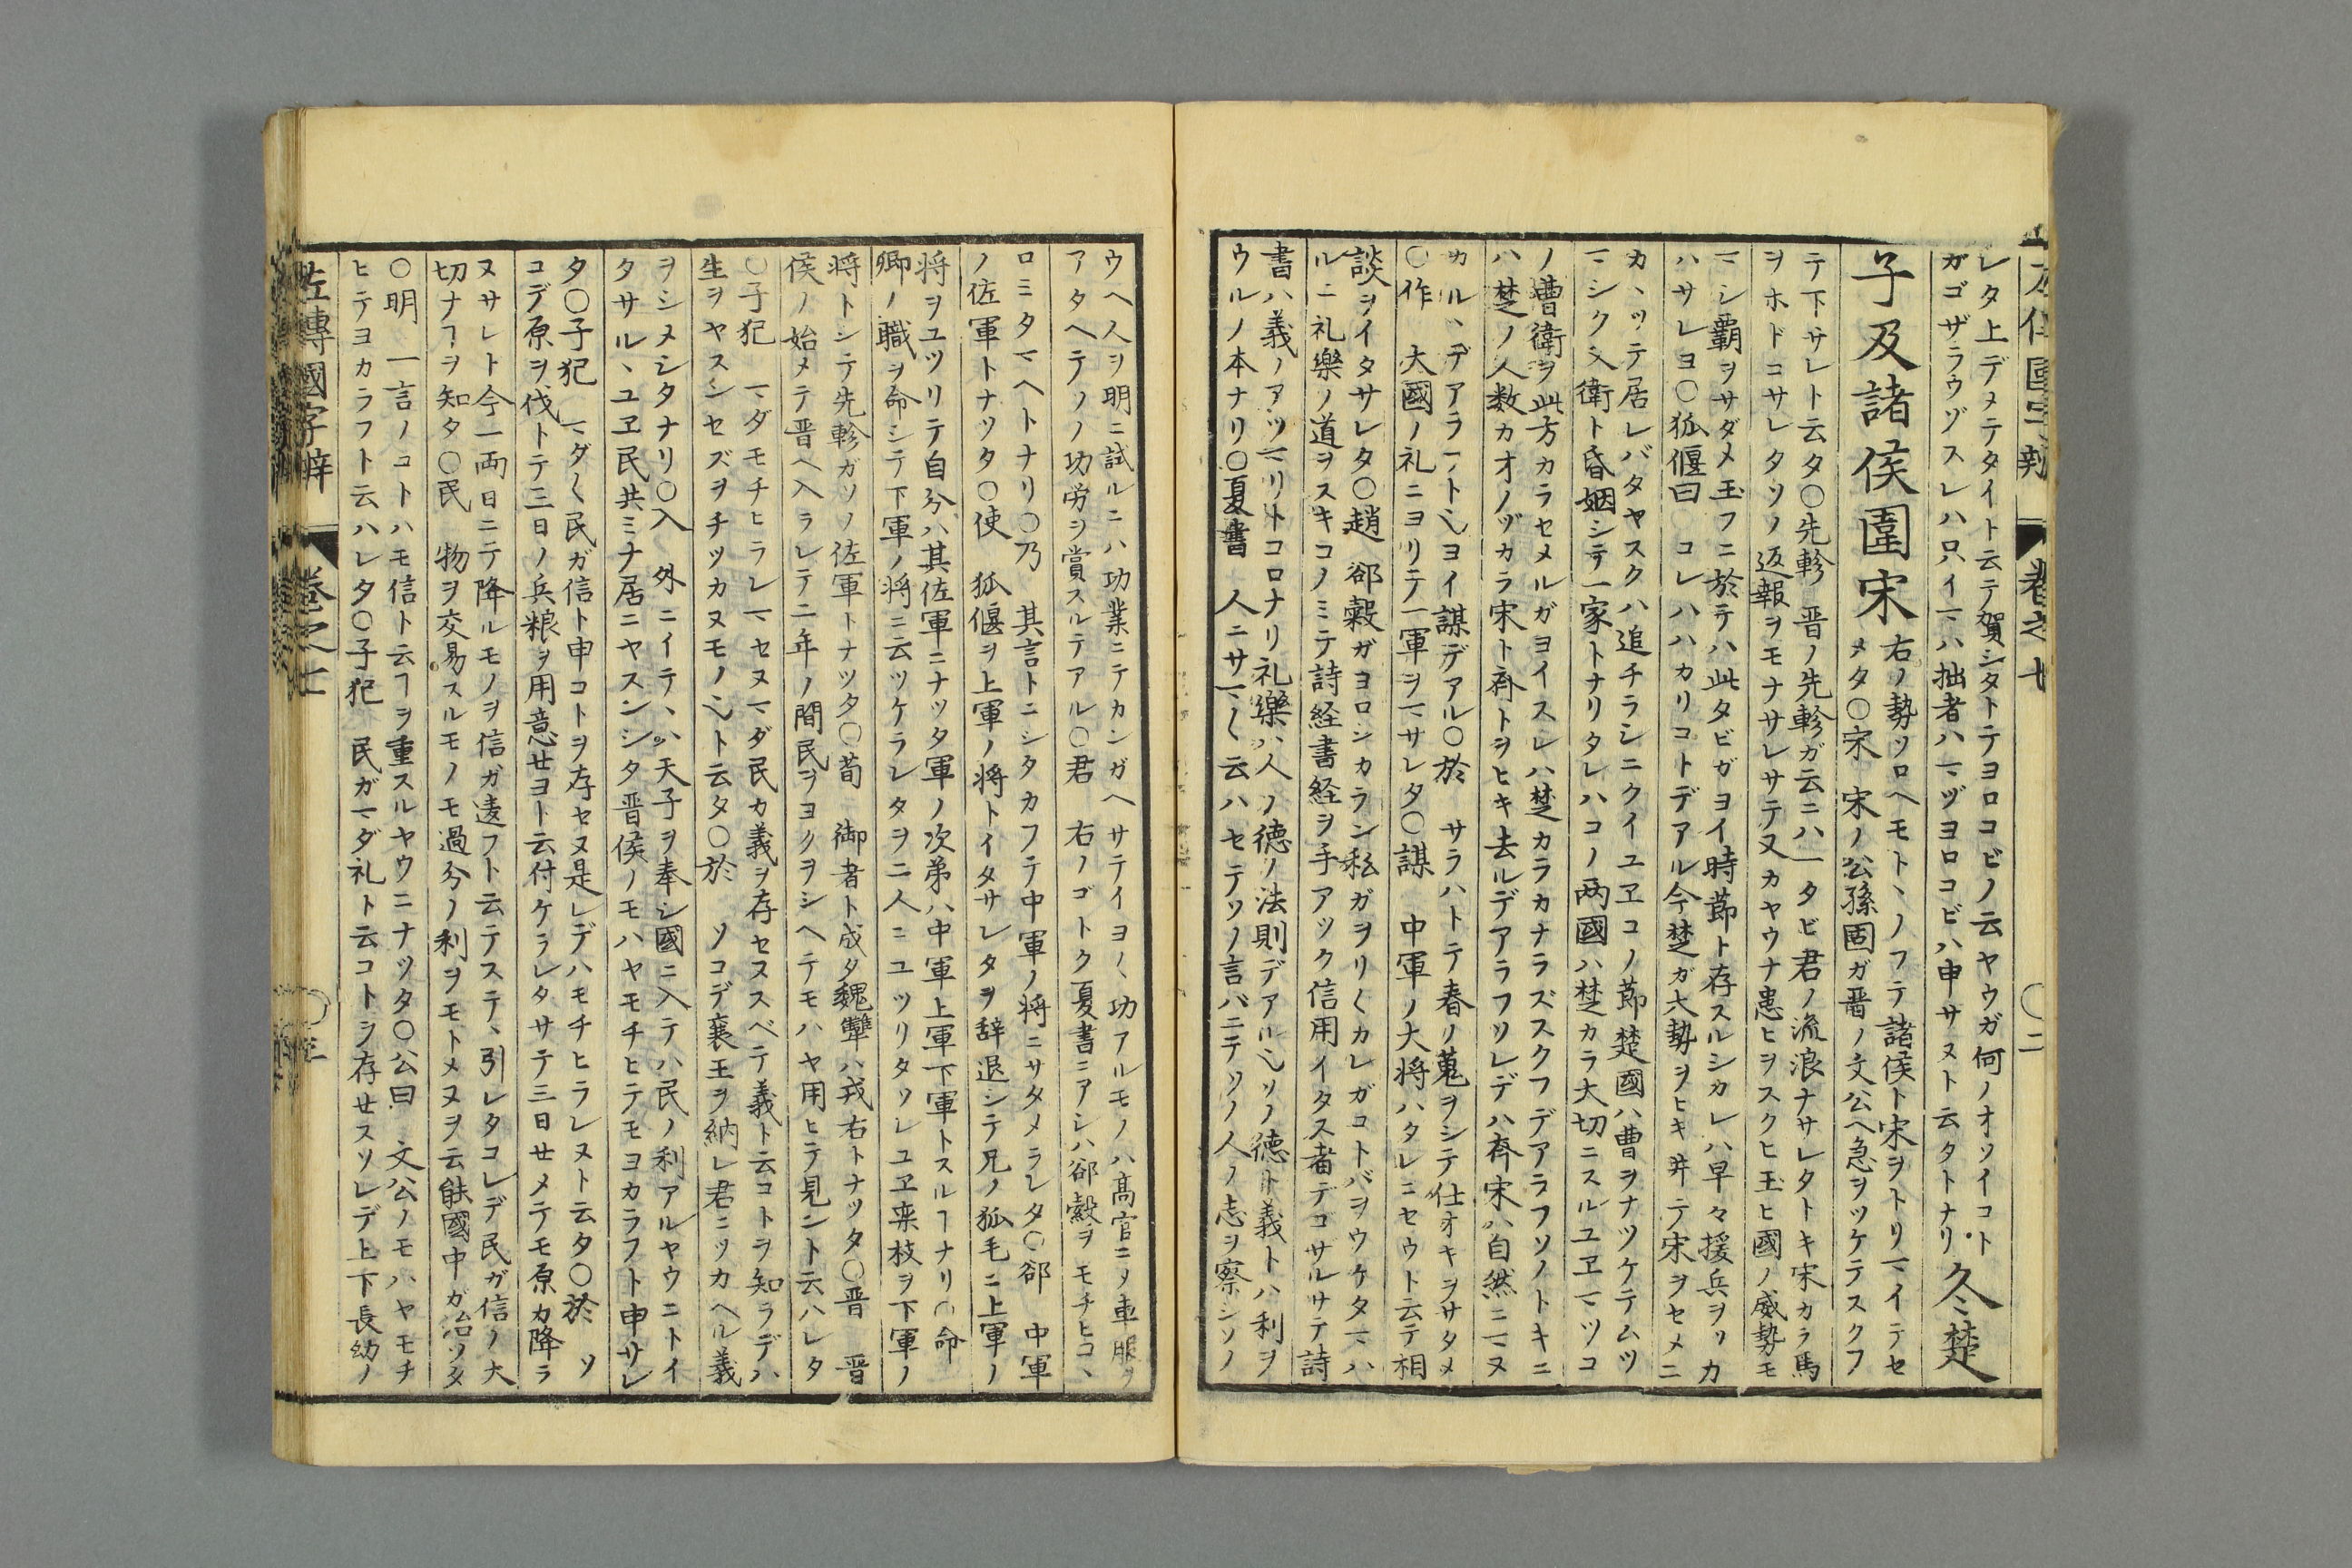 レタ上デメテタイト云テ賀シタトテヨロコビノ云ヤウガ何ノオソイコト
ガゴザラウヅスレハ只イマハ拙者ハマヅヨロコビハ申サヌト云タトナリ 冬楚
子及諸侯圍宋
右ノ勢ソロヘモトヽノフテ諸侯ト宋ヲトリマイテセ
メタ〇宋 宋ノ公孫固ガ晋ノ文公ヘ急ヲツゲテスクフ
テ下サレト云タ〇先軫 晋ノ先軫ガ云ニハ一タビ君ノ流浪ナサレタトキ宋カラ馬
ヲホドコサレタソノ返報ヲモナサレサテ又カヤウナ患ヒヲスクヒ玉ヒ國ノ威勢モ
マシ覇ヲサダメ玉フニ於テハ此タビガヨイ時節ト存スルシカレハ早々援兵ヲツカ
ハサレヨ〇狐偃曰 コレハハカリコトデアル今楚ガ大勢ヲヒキ井テ宋ヲセメニ
カヽツテ居レバタヤスクハ追チラシニクイユヱコノ節楚國ハ曹ヲナツケテムツ
マシク又衛ト昏姻シテ一家トナリタレハコノ両國ハ楚カラ大切ニスルユヱマツコ
ノ曹衛ヲ此方カラセメルガヨイスレハ楚カラカナラズスクフデアラフソノトキニ
ハ楚ノ人数カオノヅカラ宋ト斉トヲヒキ去ルデアラフソレデハ斉宋ハ自然ニマヌ
カルヽデアラフトヨイ謀デアル〇於 サラハトテ春リ蒐ヲシテ仕オキヲサタメ
〇作 大國ノ礼ニヨリテ一軍ヲマサレタ〇謀 中軍ノ大将ハタレニセウト云テ相
談ヲイタサレタ〇趙 郤縠ガヨロシカラン私ガヲリ〱カレガコトバヲウケタマハ
ルニ礼樂ノ道ヲスキコノミテ詩経書経ヲ手アツク信用イタス者デゴサルサテ詩
書ハ義ノアツマリトコロナリ礼樂ハ人ノ徳ノ法則デアルソノ徳ト義トハ利ヲ
ウルノ本ナリ〇夏書 人ニサマ〱云ハセテソノ言バニテソノ人ノ志ヲ察シソノ
ウヘ人ヲ明ニ試ルニハ功業ニテカンガヘサテイヨ〱功アルモノハ高官ニメ車服ヲ
アタヘテソノ功労ヲ賞スルテアル〇君 右ノゴトク夏書ニアレハ郤縠ヲモチヒコヽ
ロミタマヘトナリ〇乃 其言トニシタカフテ中軍ノ将ニサタメラレタ〇郤 中軍
ノ佐軍トナツタ〇使 狐偃ヲ上軍ノ将トイタサレタヲ辞退シテ兄ノ狐毛ニ上軍ノ
将ヲユツリテ自分ハ其佐軍ニナツタ軍ノ次第ハ中軍上軍下軍トスルヿナリ〇命
卿ノ職ヲ命シテ下軍ノ将ニ云ツケラレタヲ二人ニユツリタソレユヱ栾枝ヲ下軍ノ
将トシテ先軫ガソノ佐軍トナツタ〇荀 御者ト成タ魏犨ハ戎右トナツタ〇晋 晋
侯ノ始メテ晋ヘ入ラレテ二年ノ間民ヲヨクヲシヘテモハヤ用ヒテ見ント云ハレタ
〇子犯 マダモチヒラレマセヌマダ民カ義ヲ存セヌスベテ義ト云コトヲ知ラデハ
生ヲヤスンセズヲチツカヌモノト云タ〇於 ソコデ襄王ヲ納レ君ニツカヘル義
ヲシメシタナリ〇入 外ニイテヽハ天子ヲ奉シ國ニ入テハ民ノ利アルヤウニトイ
タサルヽユヱ民共ミナ居ニヤスンシタ晋侯ノモハヤモチヒテモヨカラフト申サレ
タ〇子犯 マダ〱民ガ信ト申コトヲ存セヌ是レデハモチヒラレヌト云タ〇於 ソ
コデ原ヲ伐トテ三日ノ兵粮ヲ用意せヨト云付ケラレタサテ三日せメテモ原カ降ラ
ヌサレト今一両日ニテ降ルモノヲ信ガ違フト云テステヽ引レタコレデ民ガ信ノ大
切ナヿヲ知タ〇民 物ヲ交易スルモノモ過分ノ利ヲモトメヌヲ云能國中ガ治ツタ
〇明 一言ノコトハモ信ト云ヿヲ重スルヤウニナツタ〇公曰 文公ノモハヤモチ
ヒテヨカラフト云ハレタ〇子犯 民ガマダ礼ト云コトヲ存せスソレデ上下長幼ノ
左傳國字辨 巻之七 〇三